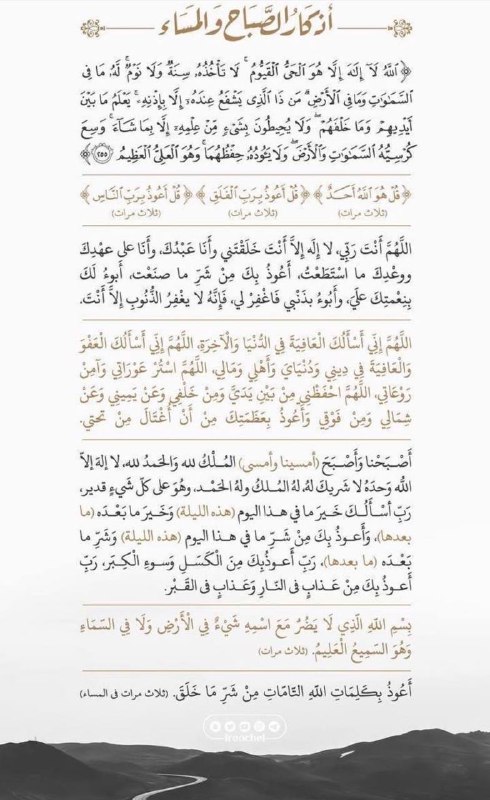 أذكار الصباح والمساء
﴿ ٱللَّهُ لَآ إِلَٰهَ إِلَّا هُوَ ٱلۡحَيُّ ٱلۡقَيُّومُۚ لَا تَأۡخُذُهُۥ سِنَةٞ وَلَا نَوۡمٞۚ لَّهُۥ مَا فِي
ٱلسَّمَٰوَٰتِ وَمَا فِي ٱلۡأَرۡضِۗ مَن ذَا ٱلَّذِي يَشۡفَعُ عِندَهُۥٓ إِلَّا بِإِذۡنِهِۦۚ يَعۡلَمُ مَا بَيۡنَ
أَيۡدِيهِمۡ وَمَا خَلۡفَهُمۡۖ وَلَا يُحِيطُونَ بِشَيۡءٖ مِّنۡ عِلۡمِهِۦٓ إِلَّا بِمَا شَآءَۚ وَسِعَ
كُرۡسِيُّهُ ٱلسَّمَٰوَٰتِ وَٱلۡأَرۡضَۖ وَلَا يَـُٔودُهُۥ حِفۡظُهُمَاۚ وَهُوَ ٱلۡعَلِيُّ ٱلۡعَظِيمُ ٢٥٥ ﴾
﴿ قُلۡ هُوَ ٱللَّهُ أَحَدٌ ﴾ ﴿ قُلۡ أَعُوذُ بِرَبِّ ٱلۡفَلَقِ ﴾ ﴿ قُلۡ أَعُوذُ بِرَبِّ ٱلنَّاسِ ﴾
(ثلاث مرات) (ثلاث مرات) (ثلاث مرات)
اللَّهُمَّ أَنْتَ رَبِّي، لا إِلَه إِلاَّ أَنْتَ خَلَقْتَني وأَنَا عَبْدُكَ، وأَنَا على عهْدِكَ
ووعْدِكَ ما اسْتَطَعْتُ، أَعُوذُ بِكَ مِنْ شَرِّ ما صنَعْتُ، أَبوءُ لَكَ
بِنِعْمتِكَ علَيَّ، وأَبُوءُ بذَنْبي فَاغْفِرْ لي، فَإِنَّهُ لا يغْفِرُ الذُّنُوبِ إِلاَّ أَنْتَ.
اللَّهُمَّ إِنِّي أَسْأَلُكَ الْعَافِيَةَ فِي الدُّنْيَا وَالْآخِرَةِ، اللَّهُمَّ إِنِّي أَسْأَلُكَ الْعَفْوَ
وَالْعَافِيَةَ فِي دِينِي وَدُنْيَايَ وَأَهْلِي وَمَالِي، اللَّهُمَّ اسْتُرْ عَوْرَاتِي وَآمِنْ
رَوْعَاتِي، اللَّهُمَّ احْفَظْنِي مِنْ بَيْنِ يَدَيَّ وَمِنْ خَلْفِي وَعَنْ يَمِينِي وَعَنْ
شِمَالِي وَمِنْ فَوْقِي وَأَعُوذُ بِعَظَمَتِكَ مِنْ أَنْ أُغْتَالَ مِنْ تَحْتِي.
أَصْبَحْنا وَأَصْبَحَ (أمسينا وأمسى) المُلْكُ لله وَالحَمدُ لله، لا إلهَ إلاّ
اللّه وَحدَهُ لا شَريكَ لهُ، لهُ المُلكُ ولهُ الحَمْد، وهُوَ على كلّ شَيءٍ قدير،
رَبِّ أسْأَلُكَ خَيرَ ما في هذا اليوم (هذه الليلة) وَخَيرَ ما بَعْدَه (ما
بعدها)، وَأَعوذُ بِكَ مِنْ شَرِّ ما في هذا اليوم (هذه الليلة) وَشَرِّ ما
بَعْدَه (ما بعدها)، رَبِّ أَعوذُبِكَ مِنَ الْكَسَلِ وَسوءِ الْكِبَر، رَبِّ
أَعوذُ بِكَ مِنْ عَذابٍ في النّارِ وَعَذابٍ في القَبْر.
بِسْمِ اللهِ الَّذِي لَا يَضُرُّ مَعَ اسْمِهِ شَيْءٌ فِي الْأَرْضِ وَلَا فِي السَّمَاءِ
وَهُوَ السَّمِيعُ الْعَلِيمُ. (ثلاث مرات)
أَعُوذُ بِكَلِمَاتِ اللَّهِ التَّامَّاتِ مِنْ شَرِّ مَا خَلَقَ. (ثلاث مرات في المساء)